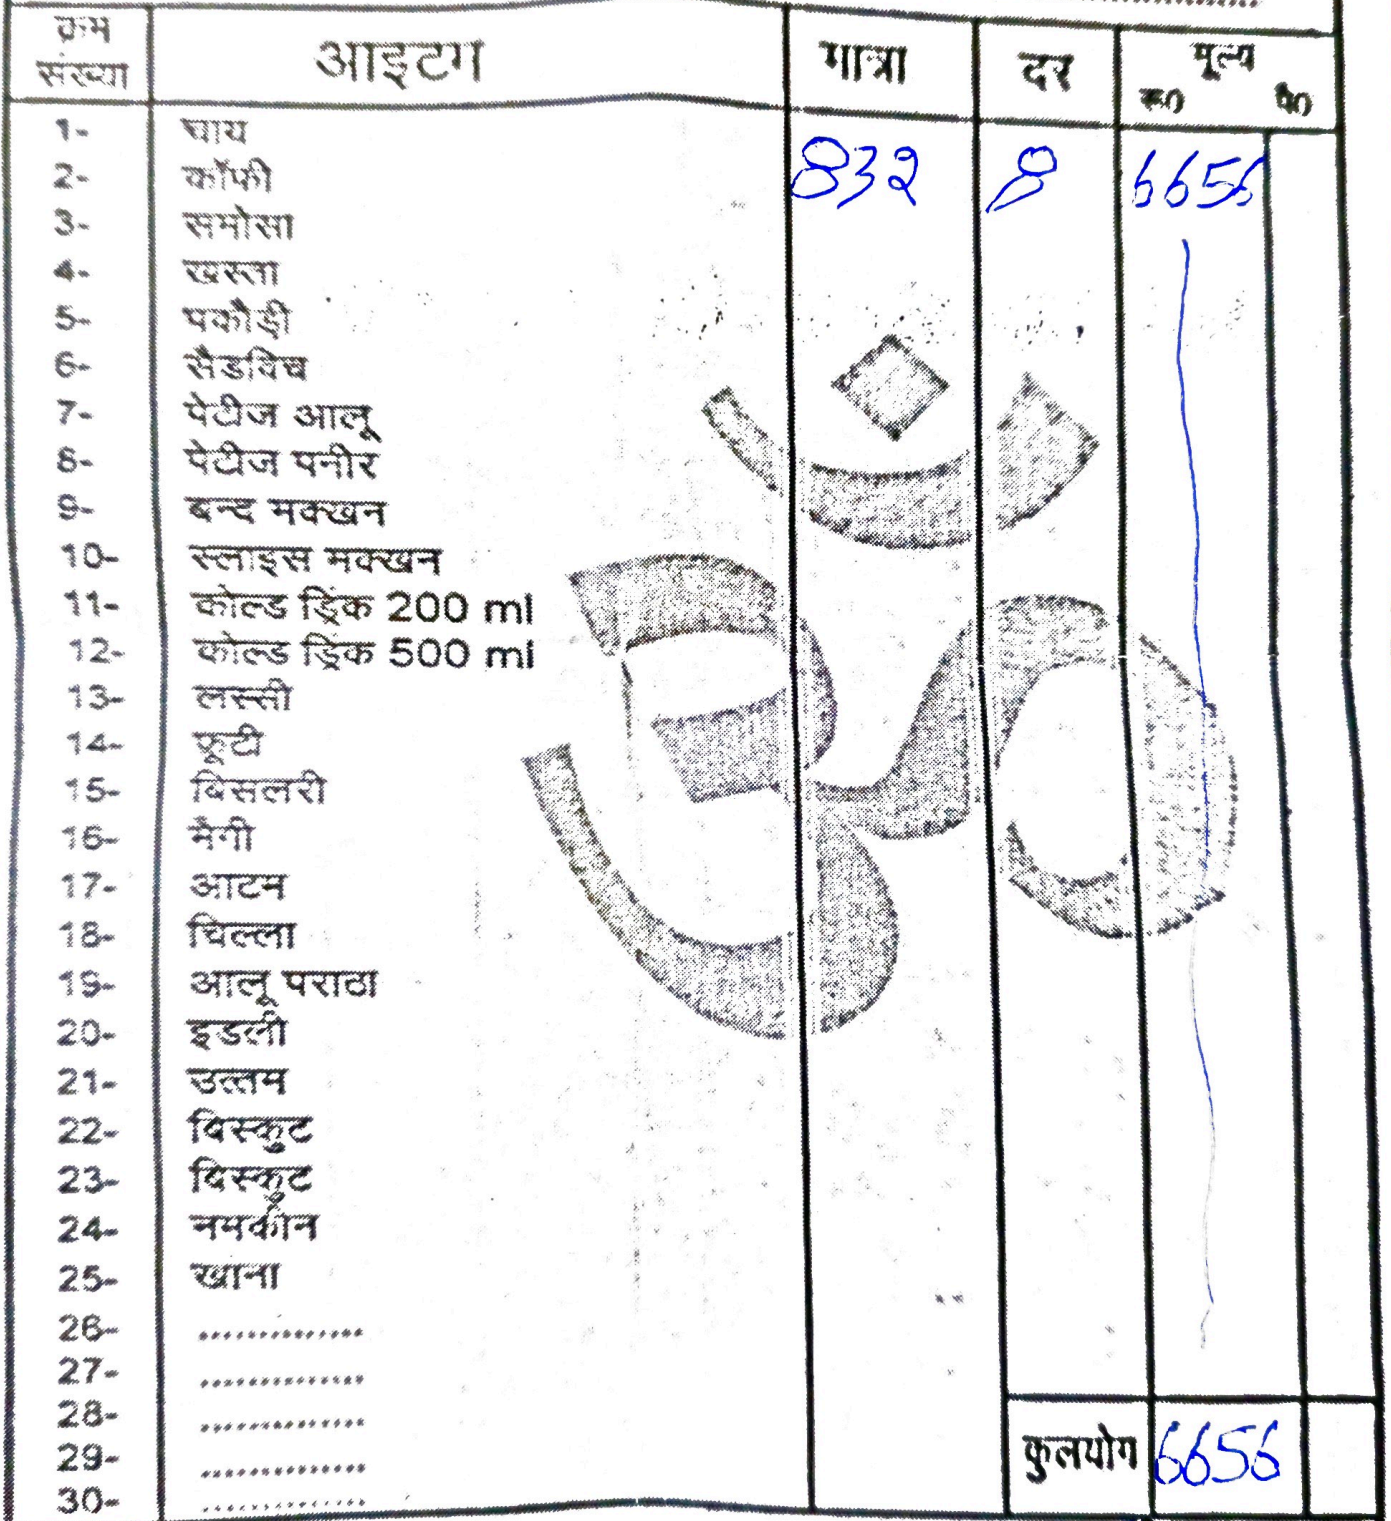 क्रम संख्या आइटम मात्रा दर मूल्य रू0 पै0
1- चाय
2- कॉफी 832 8 6656
3- समोसा
4- खस्ता
5- पकौड़ी
6- सैडविच
7- पेटीज आलू
8- पेटीज पनीर
9- बन्द मक्खन
10- स्लाइस मक्खन
11- कोल्ड ड्रिंक 200 ml
12- कोल्ड ड्रिंक 500 ml
13- लस्सी
14- फ्रूटी
15- बिसलरी
16- मैगी
17- आटम
18- चिल्ला
19- आलू पराठा
20- इडली
21- उत्तम
22- बिस्कुट
23- बिस्कुट
24- नमकीन
25- खाना
26- ..............
27- ..............
28- ..............
29- ..............
30- ..............
कुलयोग 6656